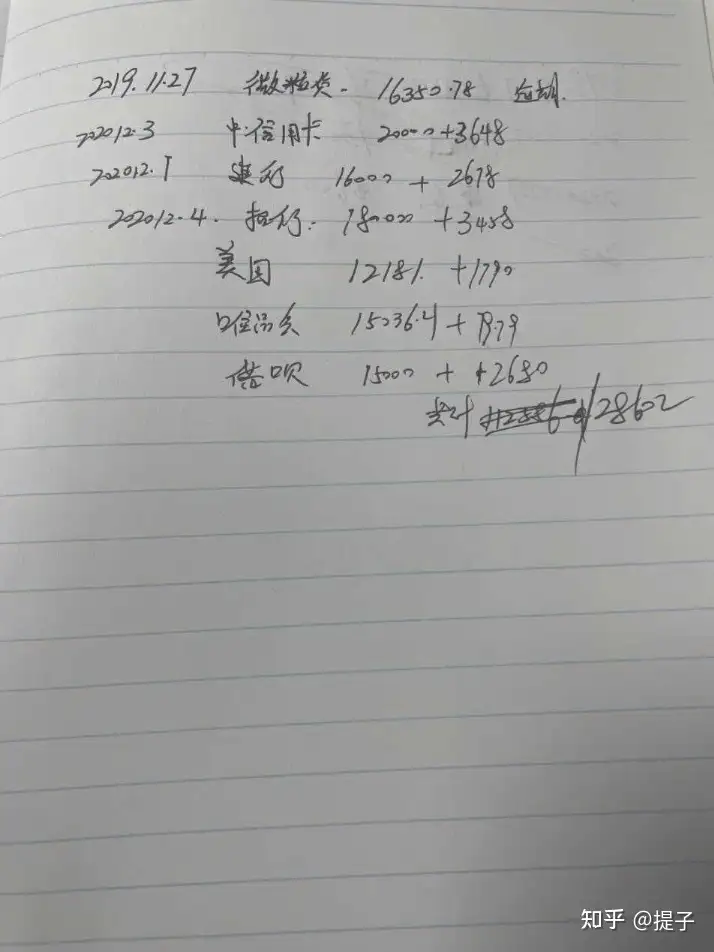 2019.11.27 微粒贷. 16350.78 逾期.
202012.3 中信用卡 20000+3648
202012.1 建行 16000 + 2678
202012.4. 招行: 18000 +3458
美团 12181. +1790
15036.4 +
借呗 15000 + 2680
共计 128602
知乎 @提子